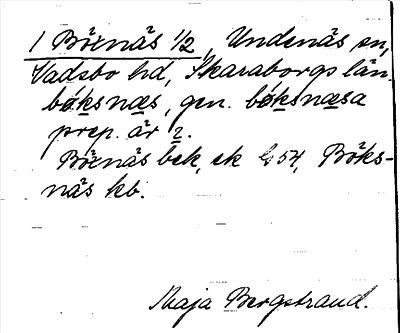 1 Bötnäs 1/2, Undenäs sn,
Vadsbo hd, Skaraborgs län.
bøksnæs, gen. bøksnæsa
prep. är 2.
Bötnäs bek, ek 54, Böks-
näs kb.
Maja Bergstrand.